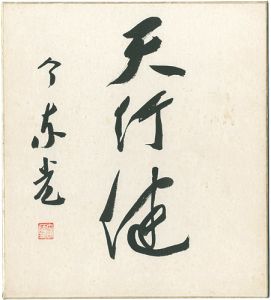 天行健
今東光